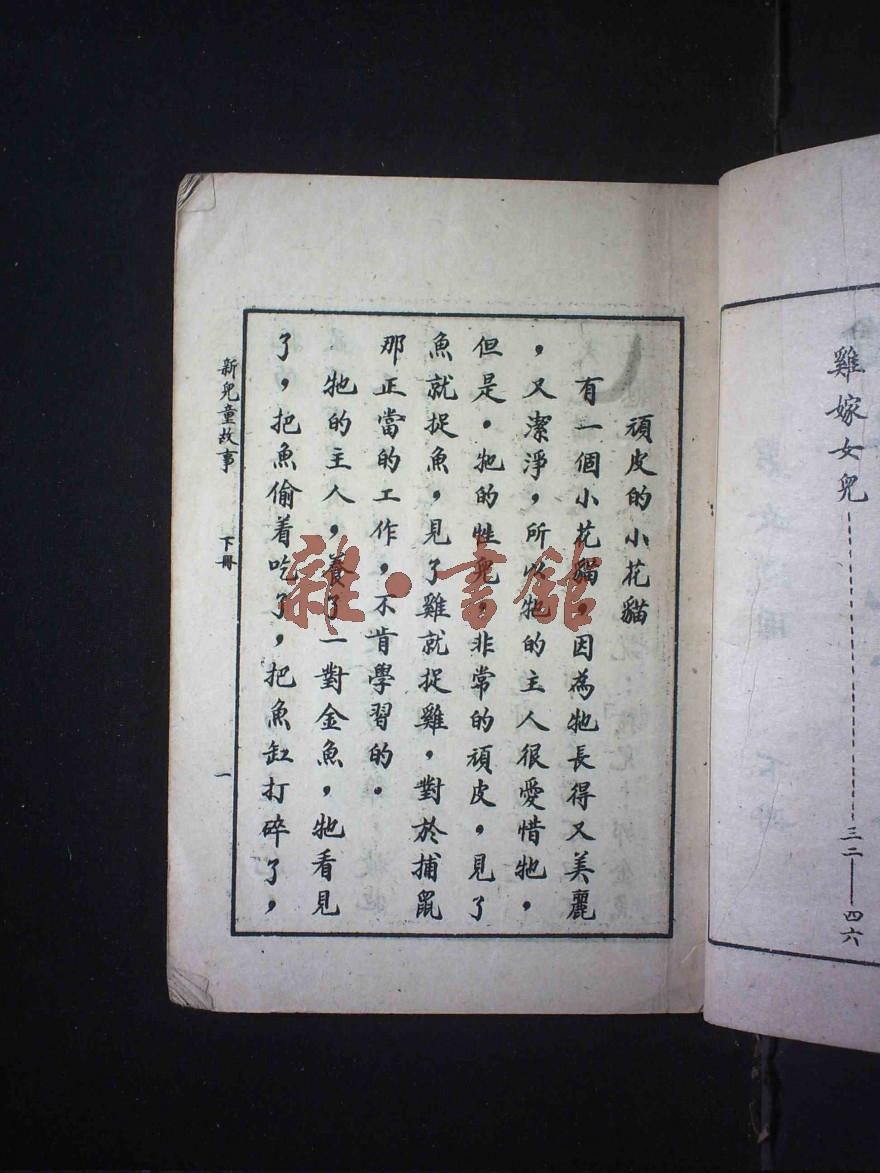 雞嫁女兒 三二——四六
頑皮的小花貓
有一個小花貓，因為牠長得又美麗
，又潔淨，所以牠的主人很愛惜牠，
但是。牠的性兒，非常的頑皮，見了
魚就捉魚，見了雞就捉雞，對於捕鼠
那正當的工作，不肯學習的。
牠的主人，養了一對金魚，牠看見
了，把魚偷着吃了，把魚缸打碎了，
新兒童故事 下冊 一
雜·書館